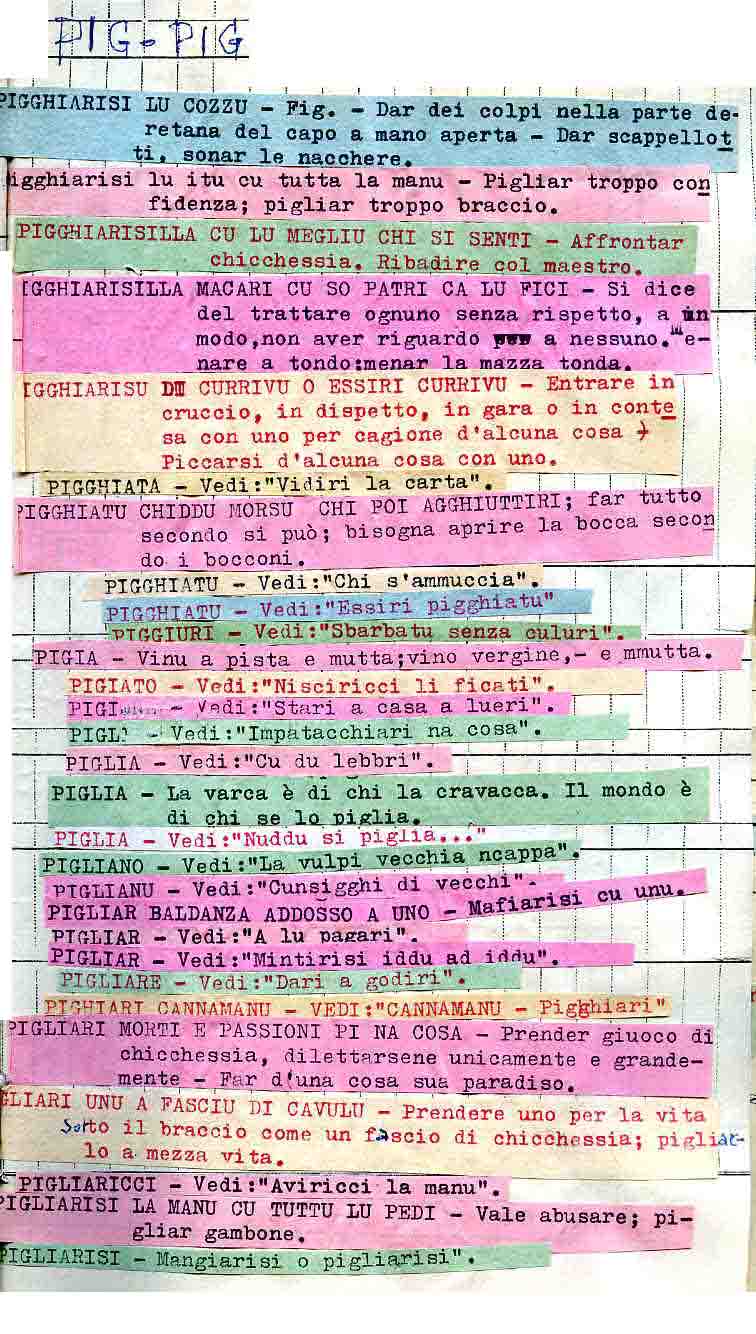 PIG - PIG
PIGGHIARISI LU COZZU - Fig. - Dar dei colpi nella parte de-
retana del capo a mano aperta - Dar scappellot
ti, sonar le nacchere.
igghiarisi lu itu cu tutta la manu - Pigliar troppo con
fidenza; pigliar troppo braccio.
PIGGHIARISILLA CU LU MEGLIU CHI SI SENTI - Affrontar
chicchessia. Ribadire col maestro.
IGGHIARISILLA MACARI CU SO PATRI CA LU FICI - Si dice
del trattare ognuno senza rispetto, a un
modo,non aver riguardo a nessuno. Me-
nare a tondo:menar la mazza tonda.
IGGHIARISU DI CURRIVU O ESSIRI CURRIVU - Entrare in
cruccio, in dispetto, in gara o in conte
sa con uno per cagione d'alcuna cosa -
Piccarsi d'alcuna cosa con uno.
PIGGHIATA - Vedi:"Vidiri la carta".
PIGGHIATU CHIDDU MORSU CHI POI AGGHIUTTIRI; far tutto
secondo si può; bisogna aprire la bocca secon
do i bocconi.
PIGGHIATU - Vedi:"Chi s'ammuccia".
PIGGHIATU - Vedi:"Essiri pigghiatu"
PIGGIURI - Vedi:"Sbarbatu senza culuri".
PIGIA - Vinu a pista e mutta;vino vergine,- e mmutta.
PIGIATO - Vedi:"Nisciricci li ficati".
PIGI - Vedi:"Stari a casa a lueri".
PIGL - Vedi:"Impatacchiari na cosa".
PIGLIA - Vedi:"Cu du lebbri".
PIGLIA - La varca è di chi la cravacca. Il mondo è
di chi se lo piglia.
PIGLIA - Vedi:"Nuddu si piglia..."
PIGLIANO - Vedi:"La vulpi vecchia ncappa".
PIGLIANU - Vedi:"Cunsigghi di vecchi".
PIGLIAR BALDANZA ADDOSSO A UNO - Mafiarisi cu unu.
PIGLIAR - Vedi:"A lu pagari".
PIGLIAR - Vedi:"Mintirisi iddu ad iddu".
PIGLIARE - Vedi:"Dari a godiri".
PIGHIARI CANNAMANU - VEDI:"CANNAMANU - Pigghiari"
PIGLIARI MORTI E PASSIONI PI NA COSA - Prender giuoco di
chicchessia, dilettarsene unicamente e grande-
mente - Far d'una cosa sua paradiso.
GLIARI UNU A FASCIU DI CAVULU - Prendere uno per la vita
Sotto il braccio come un fascio di chicchessia; pigliar-
lo a mezza vita.
PIGLIARICCI - Vedi:"Aviricci la manu".
PIGLIARISI LA MANU CU TUTTU LU PEDI - Vale abusare; pi-
gliar gambone.
PIGLIARISI - Mangiarisi o pigliarisi".